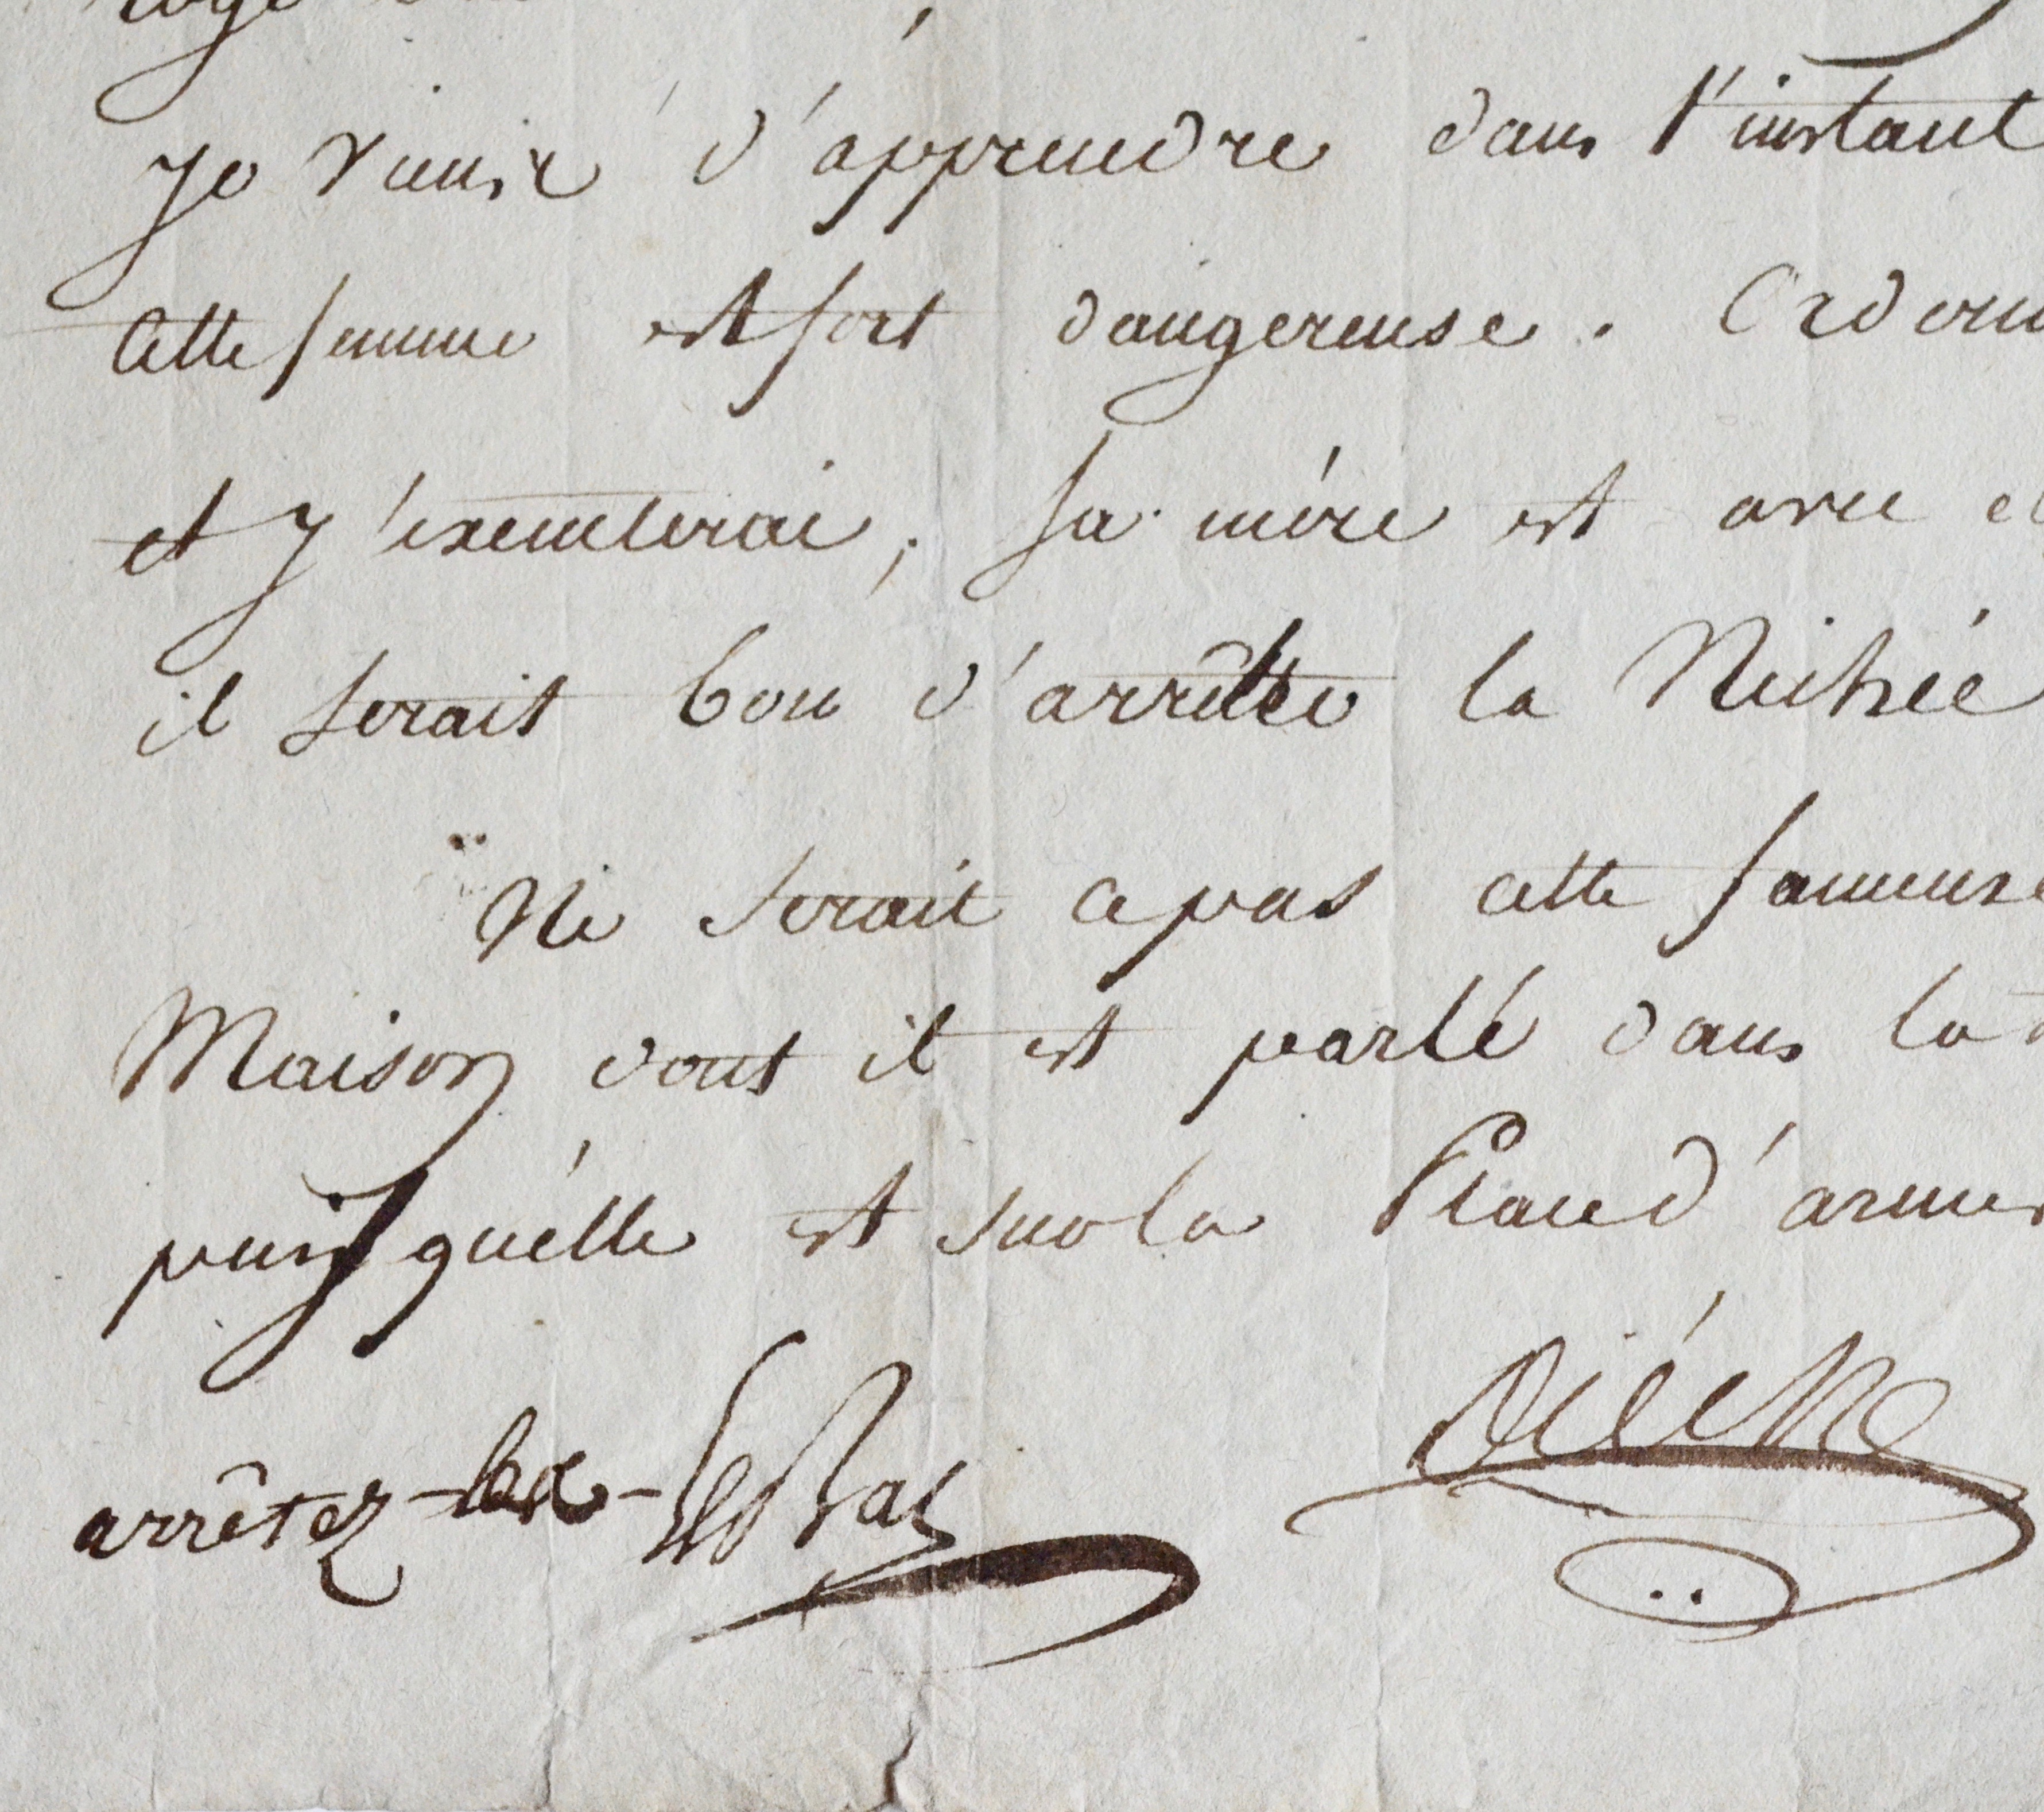 loge
je viens d'apprendre dans l'instant
Cette femme est fort dangereuse. Ordonn
et j'exécuterai; sa mére est avec el
il serait bon d'arrêter la Nichée
Ne serait ce pas cette fameuse
Maison dont il est parlé dans la
puisqu'élle est sur la Place d'armes
arrêtez-les - Le Bas